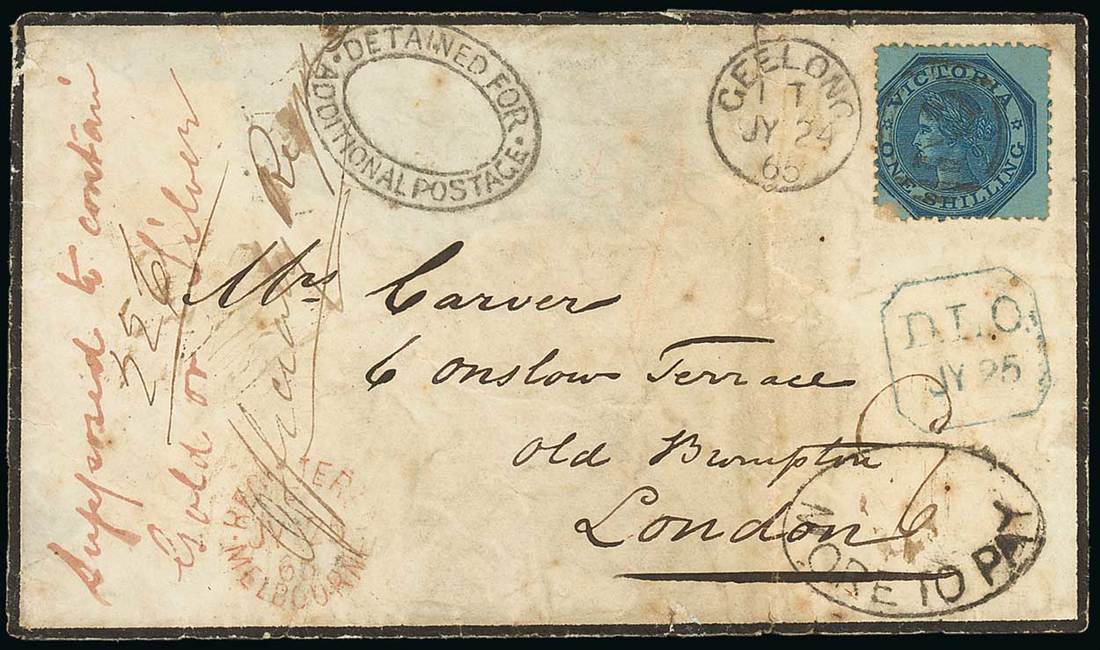 DETAINED FOR
ADDITIONAL POSTAGE
GEELONG
1 T
JY 24
65
VICTORIA
ONE SHILLING
Supposed to contain
Gold or Silver
Mrs Carver
6 Onslow Terrace
Old Brompton
London
D.L.O.
JY 25
MORE TO PAY
6
REGISTERED
MELBOURNE